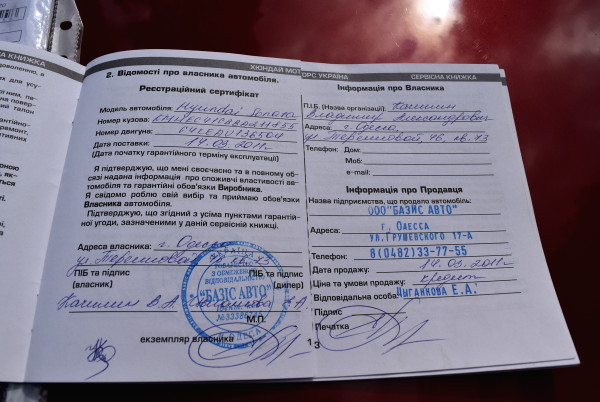 ХЮНДАЙ МОТОРС УКРАЇНА СЕРВІСНА КНИЖКА
2. Відомості про власника автомобіля.
Реєстраційний сертифікат
Модель автомобіля: Hyundai Sonata
Номер кузова:
Номер двигуна:
Дата поставки: 14.03.2011г.
(Дата початку гарантійного терміну експлуатації)
Я підтверджую, що мені своєчасно та в повному об-
сязі надана інформація про споживчі властивості ав-
томобіля та гарантійні обов'язки Виробника.
Я свідомо роблю свій вибір та приймаю обов'язки
Власника автомобіля.
Підтверджую, що згідний з усіма пунктами гарантій-
ної угоди, зазначеними у даній сервісній книжці.
Адреса власника: г. Одесса
ПІБ та підпис
(власник)
ПІБ та підпис
(дилер)
"БАЗІС АВТО"
М.П.
екземпляр власника
Інформація про Власника
П.І.Б. (Назва організації):
Владимир Александрович
Адреса: г. Одесса,
46, кв. 73
Телефон: Дом:
Моб:
e-mail:
Інформація про Продавця
Назва підприємства, що продало автомобіль:
ООО"БАЗИС АВТО"
г. ОДЕССА
Адреса: УЛ.ГРУШЕВСКОГО 17-А
Телефон: 8(0482)33-77-55
Дата продажу: 14.03.2011г.
Ціна та умови продажу: кредит
Відповідальна особа: ЦЫГАНКОВА Е.А.
Підпис
Печатка
13